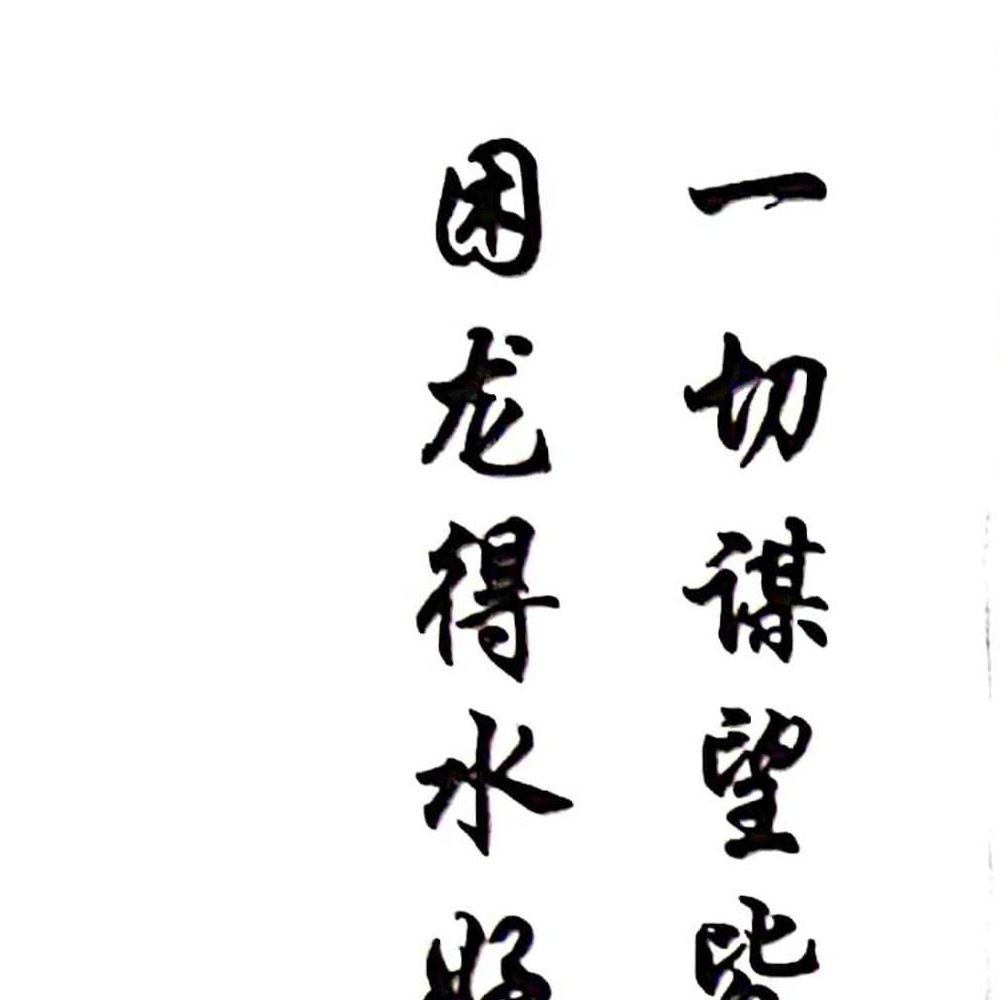 一切谋望皆
困龙得水好